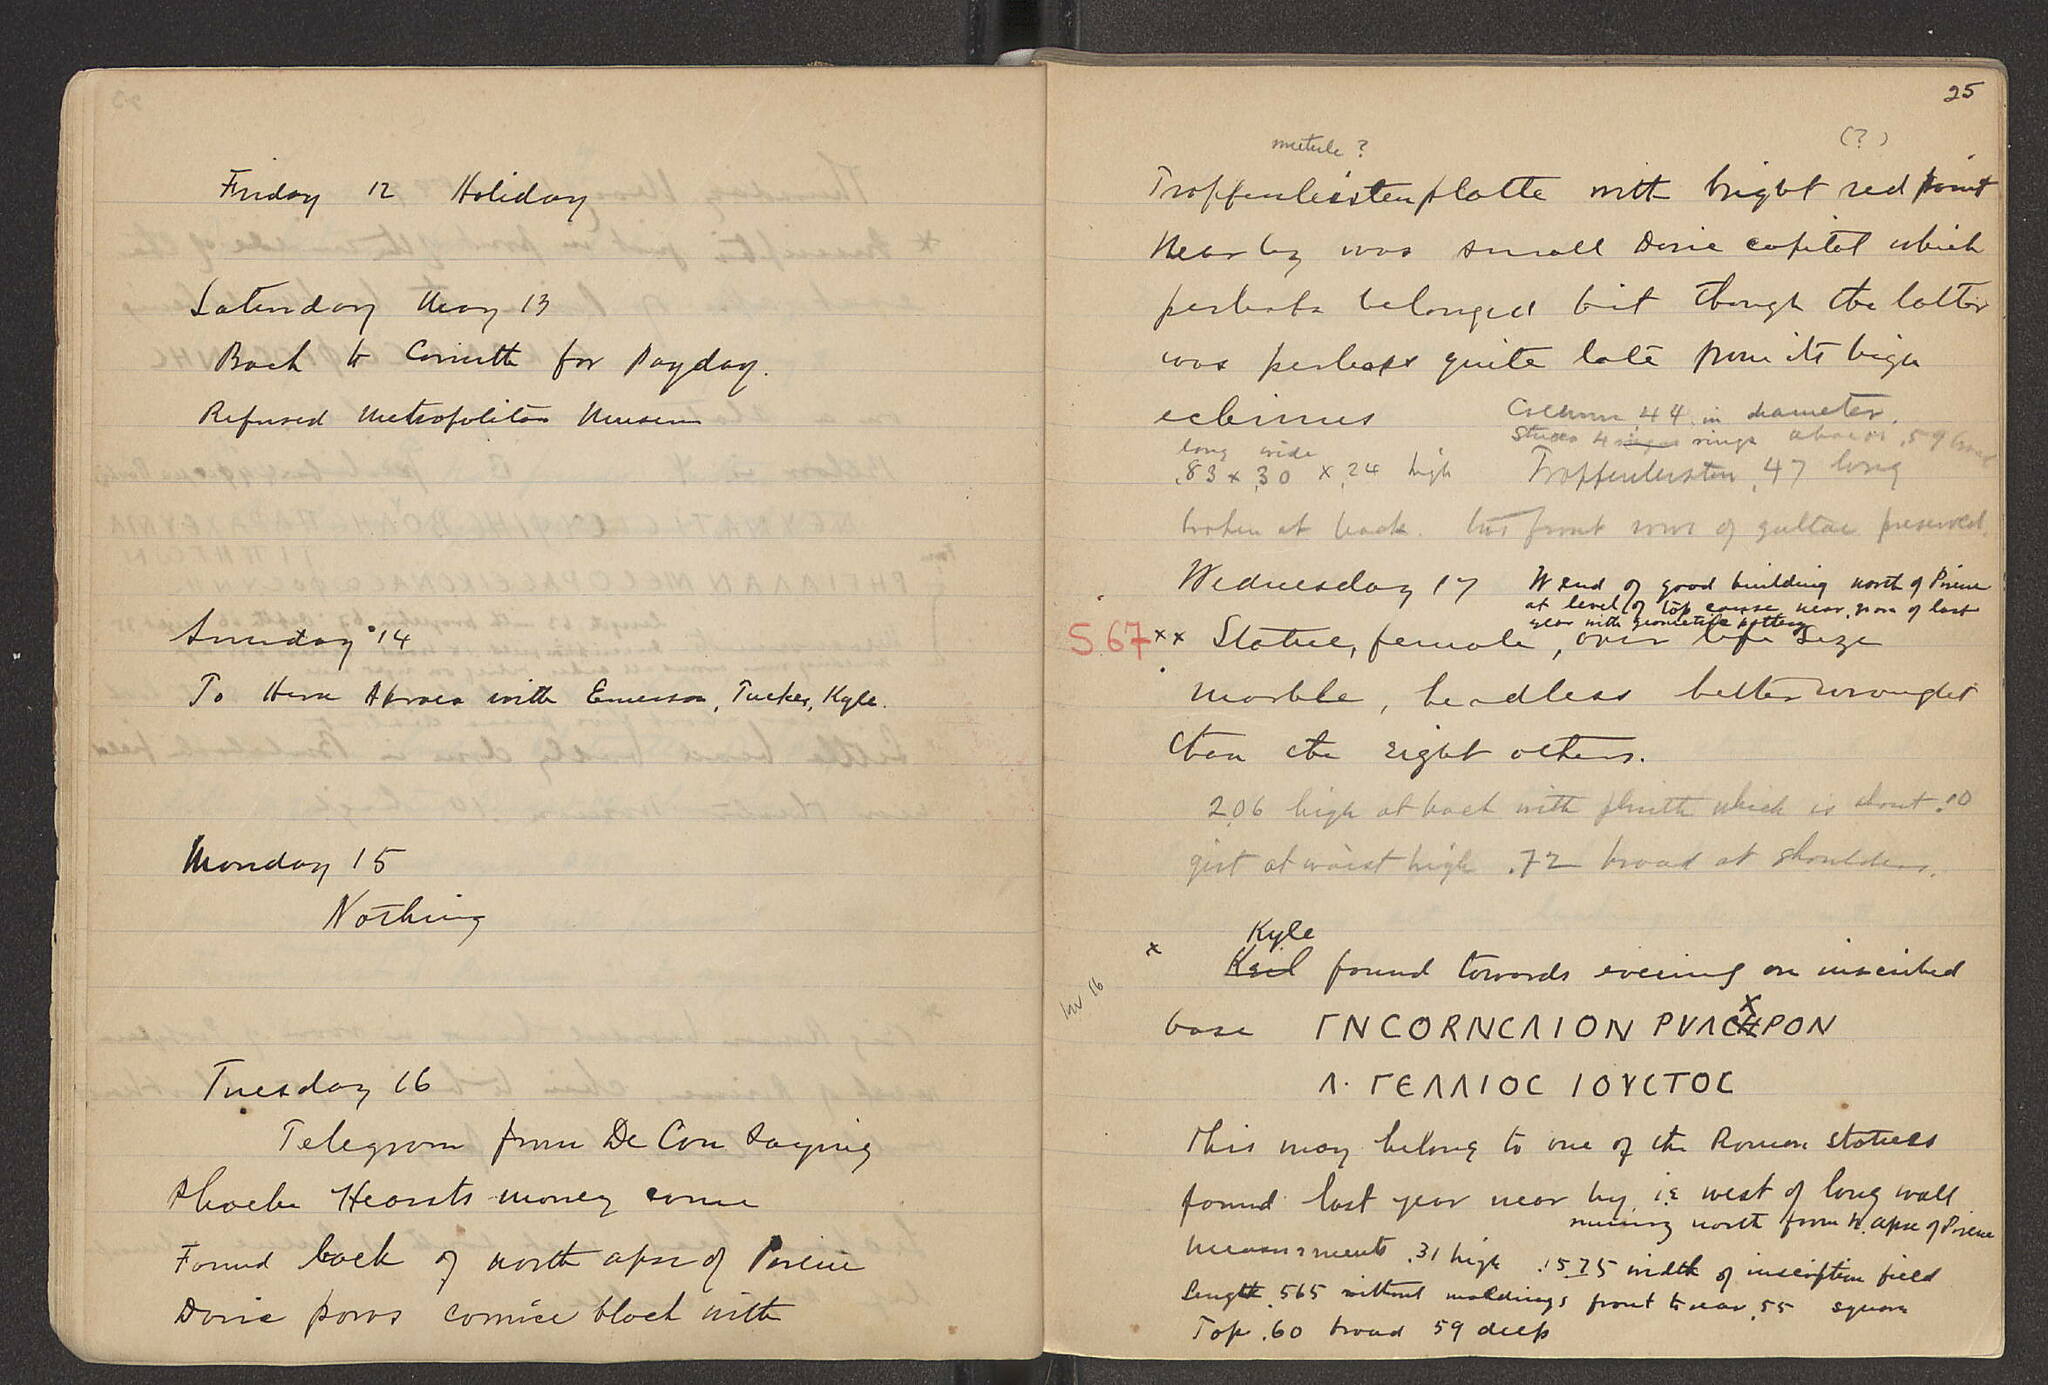 Friday 12 Holiday
Saturday May 13
Back to Corinth for Payday.
Refused Metropolitan Museum
Sunday 14
To Hexa with Emerson, Tucker, Kyle.
Monday 15
Nothing
Tuesday 16
Telegram from De Cou saying
Phoebe Hearsts money come
Found back of north apse of Pirene
Doric poros cornice block with
25
mutule ? (?)
Tropfenleistenplatte with bright red paint
Near by was small Doric capital which
perhaps belonged but though the latter
was perhaps quite late from its high
echinus
Column .44 in diameter.
4 rings rings abacus .59 broad
long wide
.83 x .30 x .24 high Tropfenleisten .47 long
broken at back. two front rows of guttae preserved.
Wednesday 17 W end of good building north of Pirene
at level of top course near room of last
year with geometric pottery
S 67 xx Statue, female, over life size
marble, headless better wrought
than the eight others.
2.06 high at back with plinth which is about .10
girt at waist high .72 broad at shoulders.
Kyle
x Keil found towards evening an inscribed
Inv 16
base ΓΝCORNCΛION PVΛCHXPON
Λ· ΓΕΛΛΙΟC ΙΟΥCΤΟC
This may belong to one of the Roman statues
found last year near by, i.e. west of long wall
running north from W. apse of Pirene
Measurements .31 high .1575 width of inscription field
Length .565 without moldings front to rear .55 square
Top .60 broad 59 deep